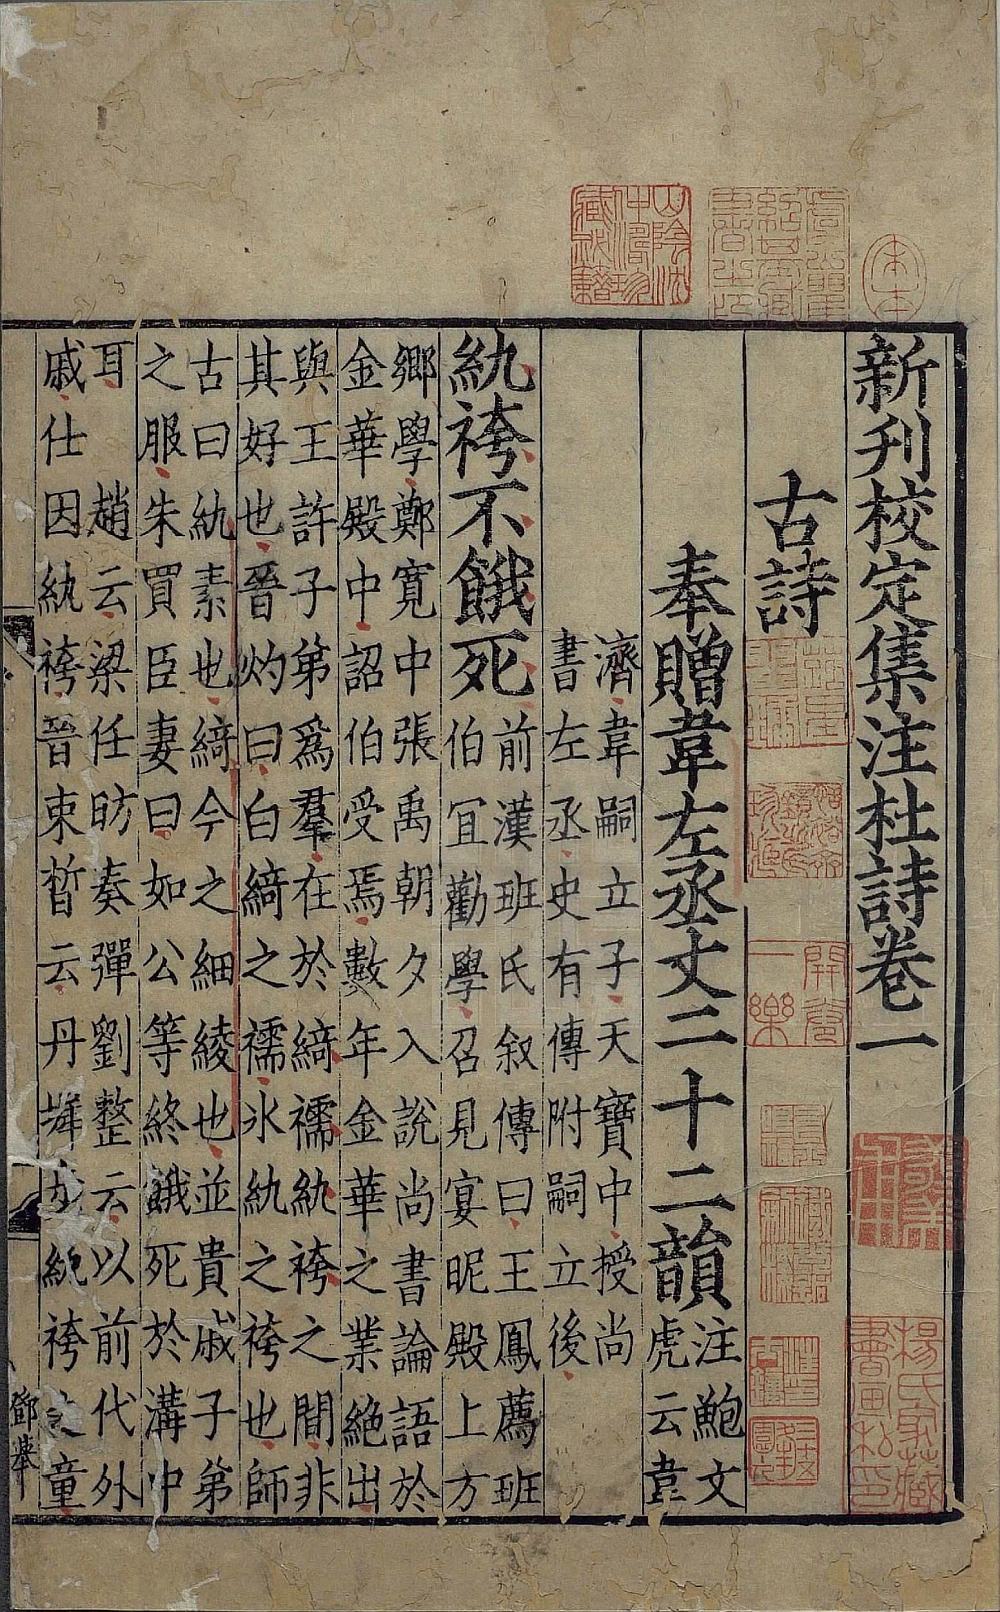 新刋校定集注杜詩卷一
古詩
奉贈韋左丞丈二十二韻
注鮑文
虎云韋
濟韋嗣立子天寶中授尚
書左丞史有傳附嗣立後
紈袴不餓死
前漢班氏叙傳曰王鳳薦班
伯宜勸學召見宴昵殿上方
鄉學鄭寛中張禹朝夕入說尚書論語於
金華殿中詔伯受焉數年金華之業絶出
與王許子弟爲羣在於綺襦紈袴之間非
其好也晉灼曰白綺之襦氷紈之袴也師
古曰紈素也綺今之細綾也並貴戚子弟
之服朱買臣妻曰如公等終餓死於溝中
耳 趙云梁任昉奏彈劉整云以前代外
戚仕因紈袴晉束晳云丹墀 紈袴之童
鄧舉
山陰沈仲濤珍藏秘籍
楊氏家藏書畫私印
開卷一樂